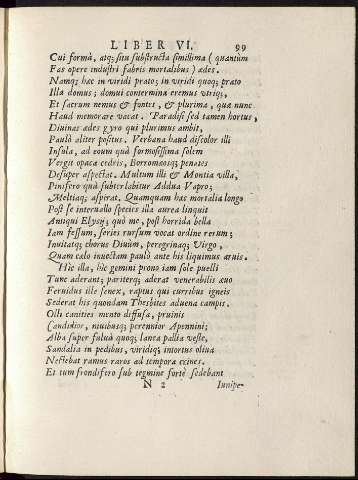 LIBER VI. 99
Cui formâ, atq; situ substructa simillima (quantùm
Fas opere industri fabris mortalibus) ædes.
Namq; hæc in viridi prato; in viridi quoq; prato
Illa domus; domui contermina eremus vtriq;,
Et sacrum nemus & fontes, & plurima, quæ nunc
Haud memorare vacat. Paradisi sed tamen hortus,
Diuinas ædes gyro qui plurimus ambit,
Paulò aliter positus. Verbana haud discolor illi
Insula, ad eoum quà formosissima solem
Vergit opaca cedris, Borromæosq; penates
Desuper aspectat. Multum illi & Montia villa,
Pinifero quà subterlabitur Addua Vapro;
Meltiaq; aspirat. Quamquam hæc mortalia longo
Post se interuallo species illa aurea linquit
Antiqui Elysij; quò me, post horrida bella
Iam fessum, series rursum vocat ordine rerum;
Inuitatq; chorus Diuûm, peregrinaq; Virgo,
Quam cælo inuectam paulò ante his liquimus aruis.
Hìc illa, hìc gemini prono iam sole puelli
Tunc aderant; pariterq; aderat venerabilis æuo
Feruidus ille senex, raptus qui curribus igneis
Sederat his quondam Thesbites aduena campis.
Olli canities mento diffusa, pruinis
Candidior, niuibusq; perennior Apennini;
Alba super fuluâ quoq; lanea pallia veste,
Sandalia in pedibus, viridiq; intortus oliua
Nectebat ramus raros ad tempora crines.
Et tum frondifero sub tegmine fortè sedebant
N 2 Iunipe-